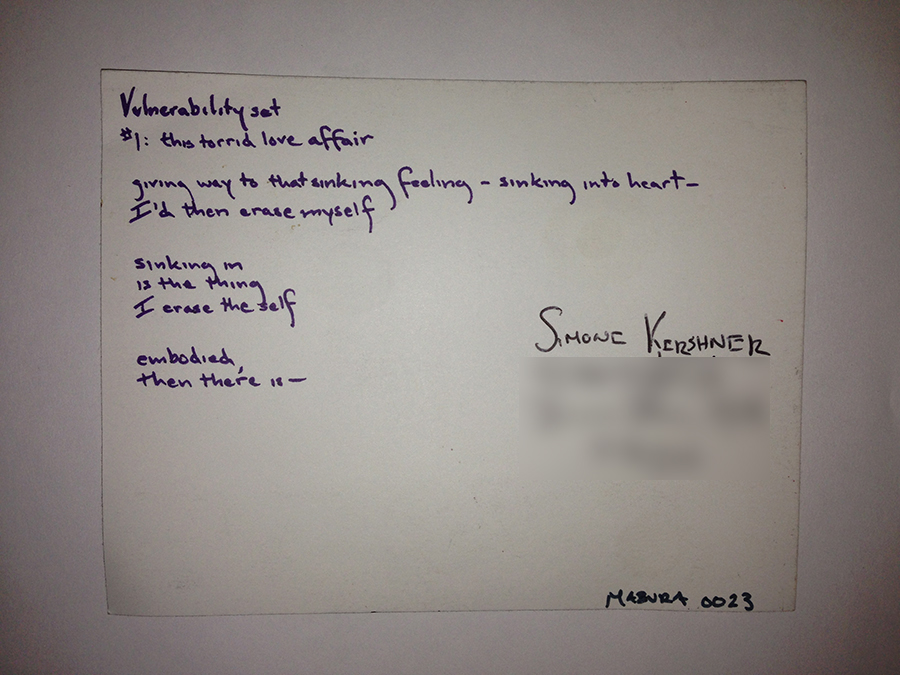 Vulnerability set
#1: this torrid love affair
giving way to that sinking feeling – sinking into heart –
I'd then erase myself
sinking in
is the thing
I erase the self
embodied,
then there is —
SIMONE KERSHNER
MABURA 0023